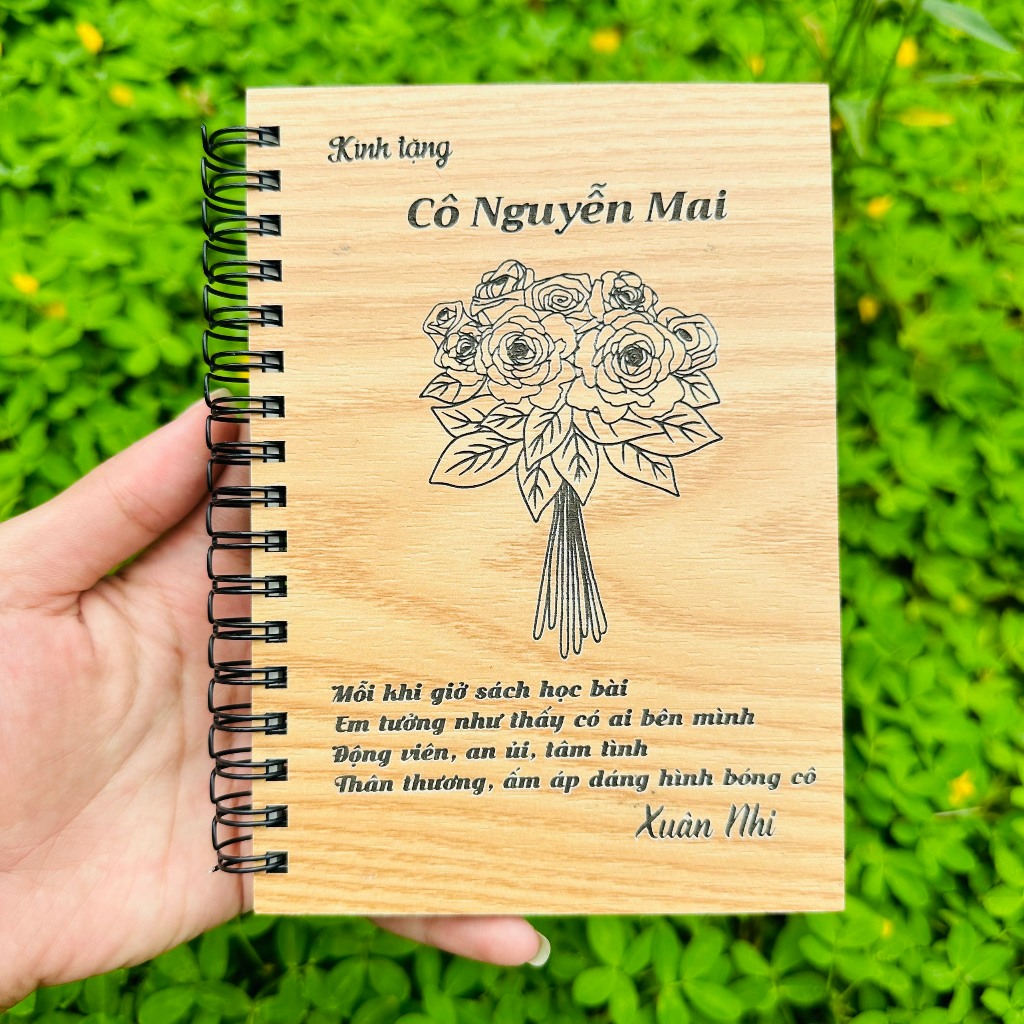 Kính tặng
Cô Nguyễn Mai
Mỗi khi giở sách học bài
Em tưởng như thấy có ai bên mình
Động viên, an ủi, tâm tình
Thân thương, ấm áp dáng hình bóng cô
Xuân Nhi